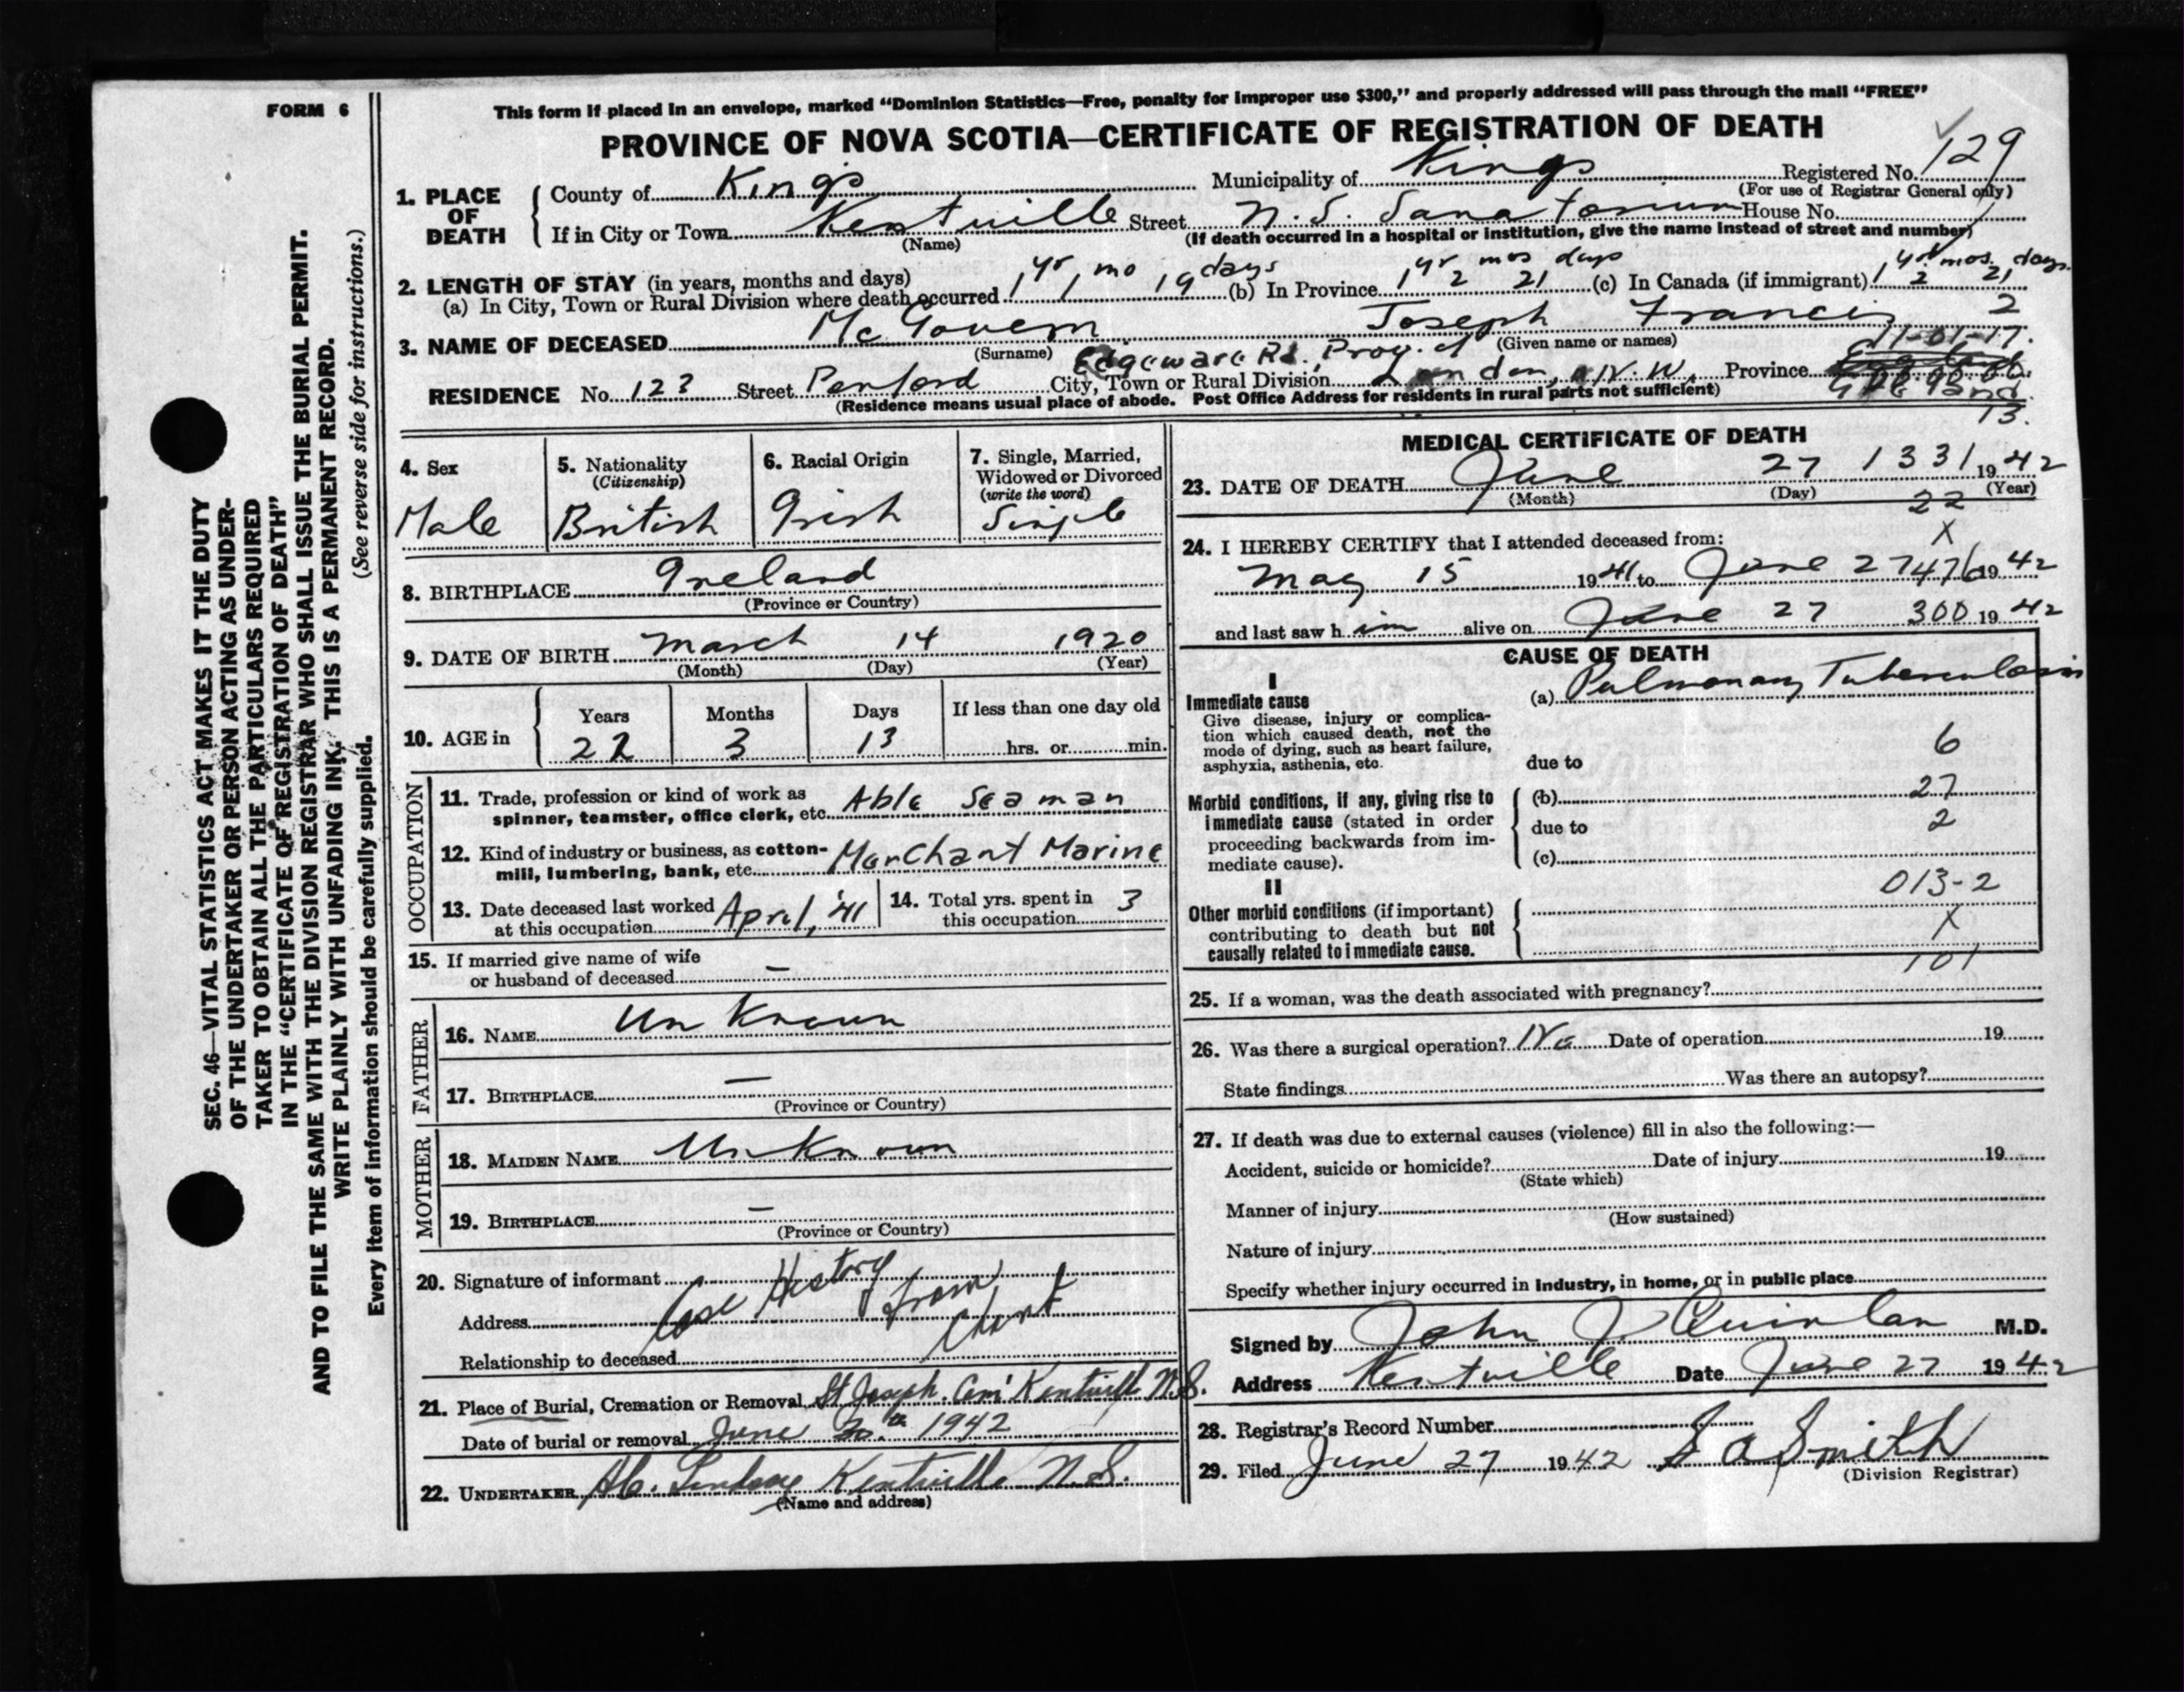 FORM 6
SEC. 46—VITAL STATISTICS ACT MAKES IT THE DUTY
OF THE UNDERTAKER OR PERSON ACTING AS UNDER-
TAKER TO OBTAIN ALL THE PARTICULARS REQUIRED
IN THE "CERTIFICATE OF REGISTRATION OF DEATH"
AND TO FILE THE SAME WITH THE DIVISION REGISTRAR WHO SHALL ISSUE THE BURIAL PERMIT.
WRITE PLAINLY WITH UNFADING INK. THIS IS A PERMANENT RECORD.
Every item of information should be carefully supplied. (See reverse side for instructions.)
This form if placed in an envelope, marked "Dominion Statistics—Free, penalty for improper use $300," and properly addressed will pass through the mail "FREE"
PROVINCE OF NOVA SCOTIA—CERTIFICATE OF REGISTRATION OF DEATH
1. PLACE OF DEATH
County of Kings Municipality of Kings Registered No. 129
(For use of Registrar General only)
If in City or Town Kentville Street N. S. Sanatorium House No.
(Name) (If death occurred in a hospital or institution, give the name instead of street and number)
2. LENGTH OF STAY (in years, months and days)
(a) In City, Town or Rural Division where death occurred 1 yr 1 mo 19 days (b) In Province 1 yr 2 mos 21 days (c) In Canada (if immigrant) 1 yr 2 mos. 21 days.
2
3. NAME OF DECEASED McGovern Joseph Francis
(Surname) (Given name or names)
11-01-17.
Edgeware Rd.
RESIDENCE No. 123 Street Penford City, Town or Rural Division London, N. W. Province England
(Residence means usual place of abode. Post Office Address for residents in rural parts not sufficient)
13.
4. Sex
Male
5. Nationality
(Citizenship)
British
6. Racial Origin
Irish
7. Single, Married,
Widowed or Divorced
(write the word)
Single
8. BIRTHPLACE Ireland
(Province or Country)
9. DATE OF BIRTH March 14 1920
(Month) (Day) (Year)
10. AGE in
Years Months Days If less than one day old
22 3 13 hrs. or min.
OCCUPATION
11. Trade, profession or kind of work as
spinner, teamster, office clerk, etc. Able Seaman
12. Kind of industry or business, as cotton-
mill, lumbering, bank, etc. Merchant Marine
13. Date deceased last worked
at this occupation April, '41
14. Total yrs. spent in
this occupation 3
15. If married give name of wife
or husband of deceased —
FATHER
16. NAME Unknown
17. BIRTHPLACE —
(Province or Country)
MOTHER
18. MAIDEN NAME Unknown
19. BIRTHPLACE —
(Province or Country)
20. Signature of informant Case History
Address from
Relationship to deceased Chart
21. Place of Burial, Cremation or Removal St Joseph. Cem' Kentville N.S.
Date of burial or removal June 30th 1942
22. UNDERTAKER Lindsay Kentville N.S.
(Name and address)
MEDICAL CERTIFICATE OF DEATH
23. DATE OF DEATH June 27 1331 1942
(Month) (Day) (Year)
22
X
24. I HEREBY CERTIFY that I attended deceased from:
May 15 1941 to June 27 476 1942
and last saw him alive on June 27 300 1942
CAUSE OF DEATH
I
Immediate cause (a) Pulmonary Tuberculosis
Give disease, injury or complica-
tion which caused death, not the
mode of dying, such as heart failure,
asphyxia, asthenia, etc.
6
due to
Morbid conditions, if any, giving rise to
immediate cause (stated in order
proceeding backwards from im-
mediate cause).
(b) 27
due to 2
(c)
II
Other morbid conditions (if important)
contributing to death but not
causally related to immediate cause.
013-2
X
101
25. If a woman, was the death associated with pregnancy?
26. Was there a surgical operation? No Date of operation 19
State findings Was there an autopsy?
27. If death was due to external causes (violence) fill in also the following:—
Accident, suicide or homicide? Date of injury 19
(State which)
Manner of injury
(How sustained)
Nature of injury
Specify whether injury occurred in industry, in home, or in public place
Signed by John J. Quinlan M.D.
Address Kentville Date June 27 1942
28. Registrar's Record Number
29. Filed June 27 1942 S A Smith
(Division Registrar)